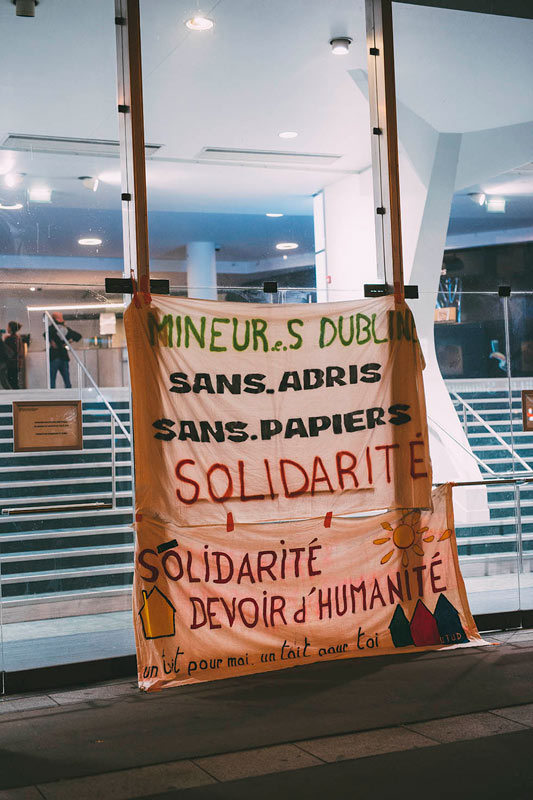 MINEUR.e.S DUBLINÉ
SANS.ABRIS
SANS.PAPIERS
SOLIDARITÉ
SOLIDARITÉ
DEVOIR d'HUMANITÉ
un toit pour moi, un toit pour toi